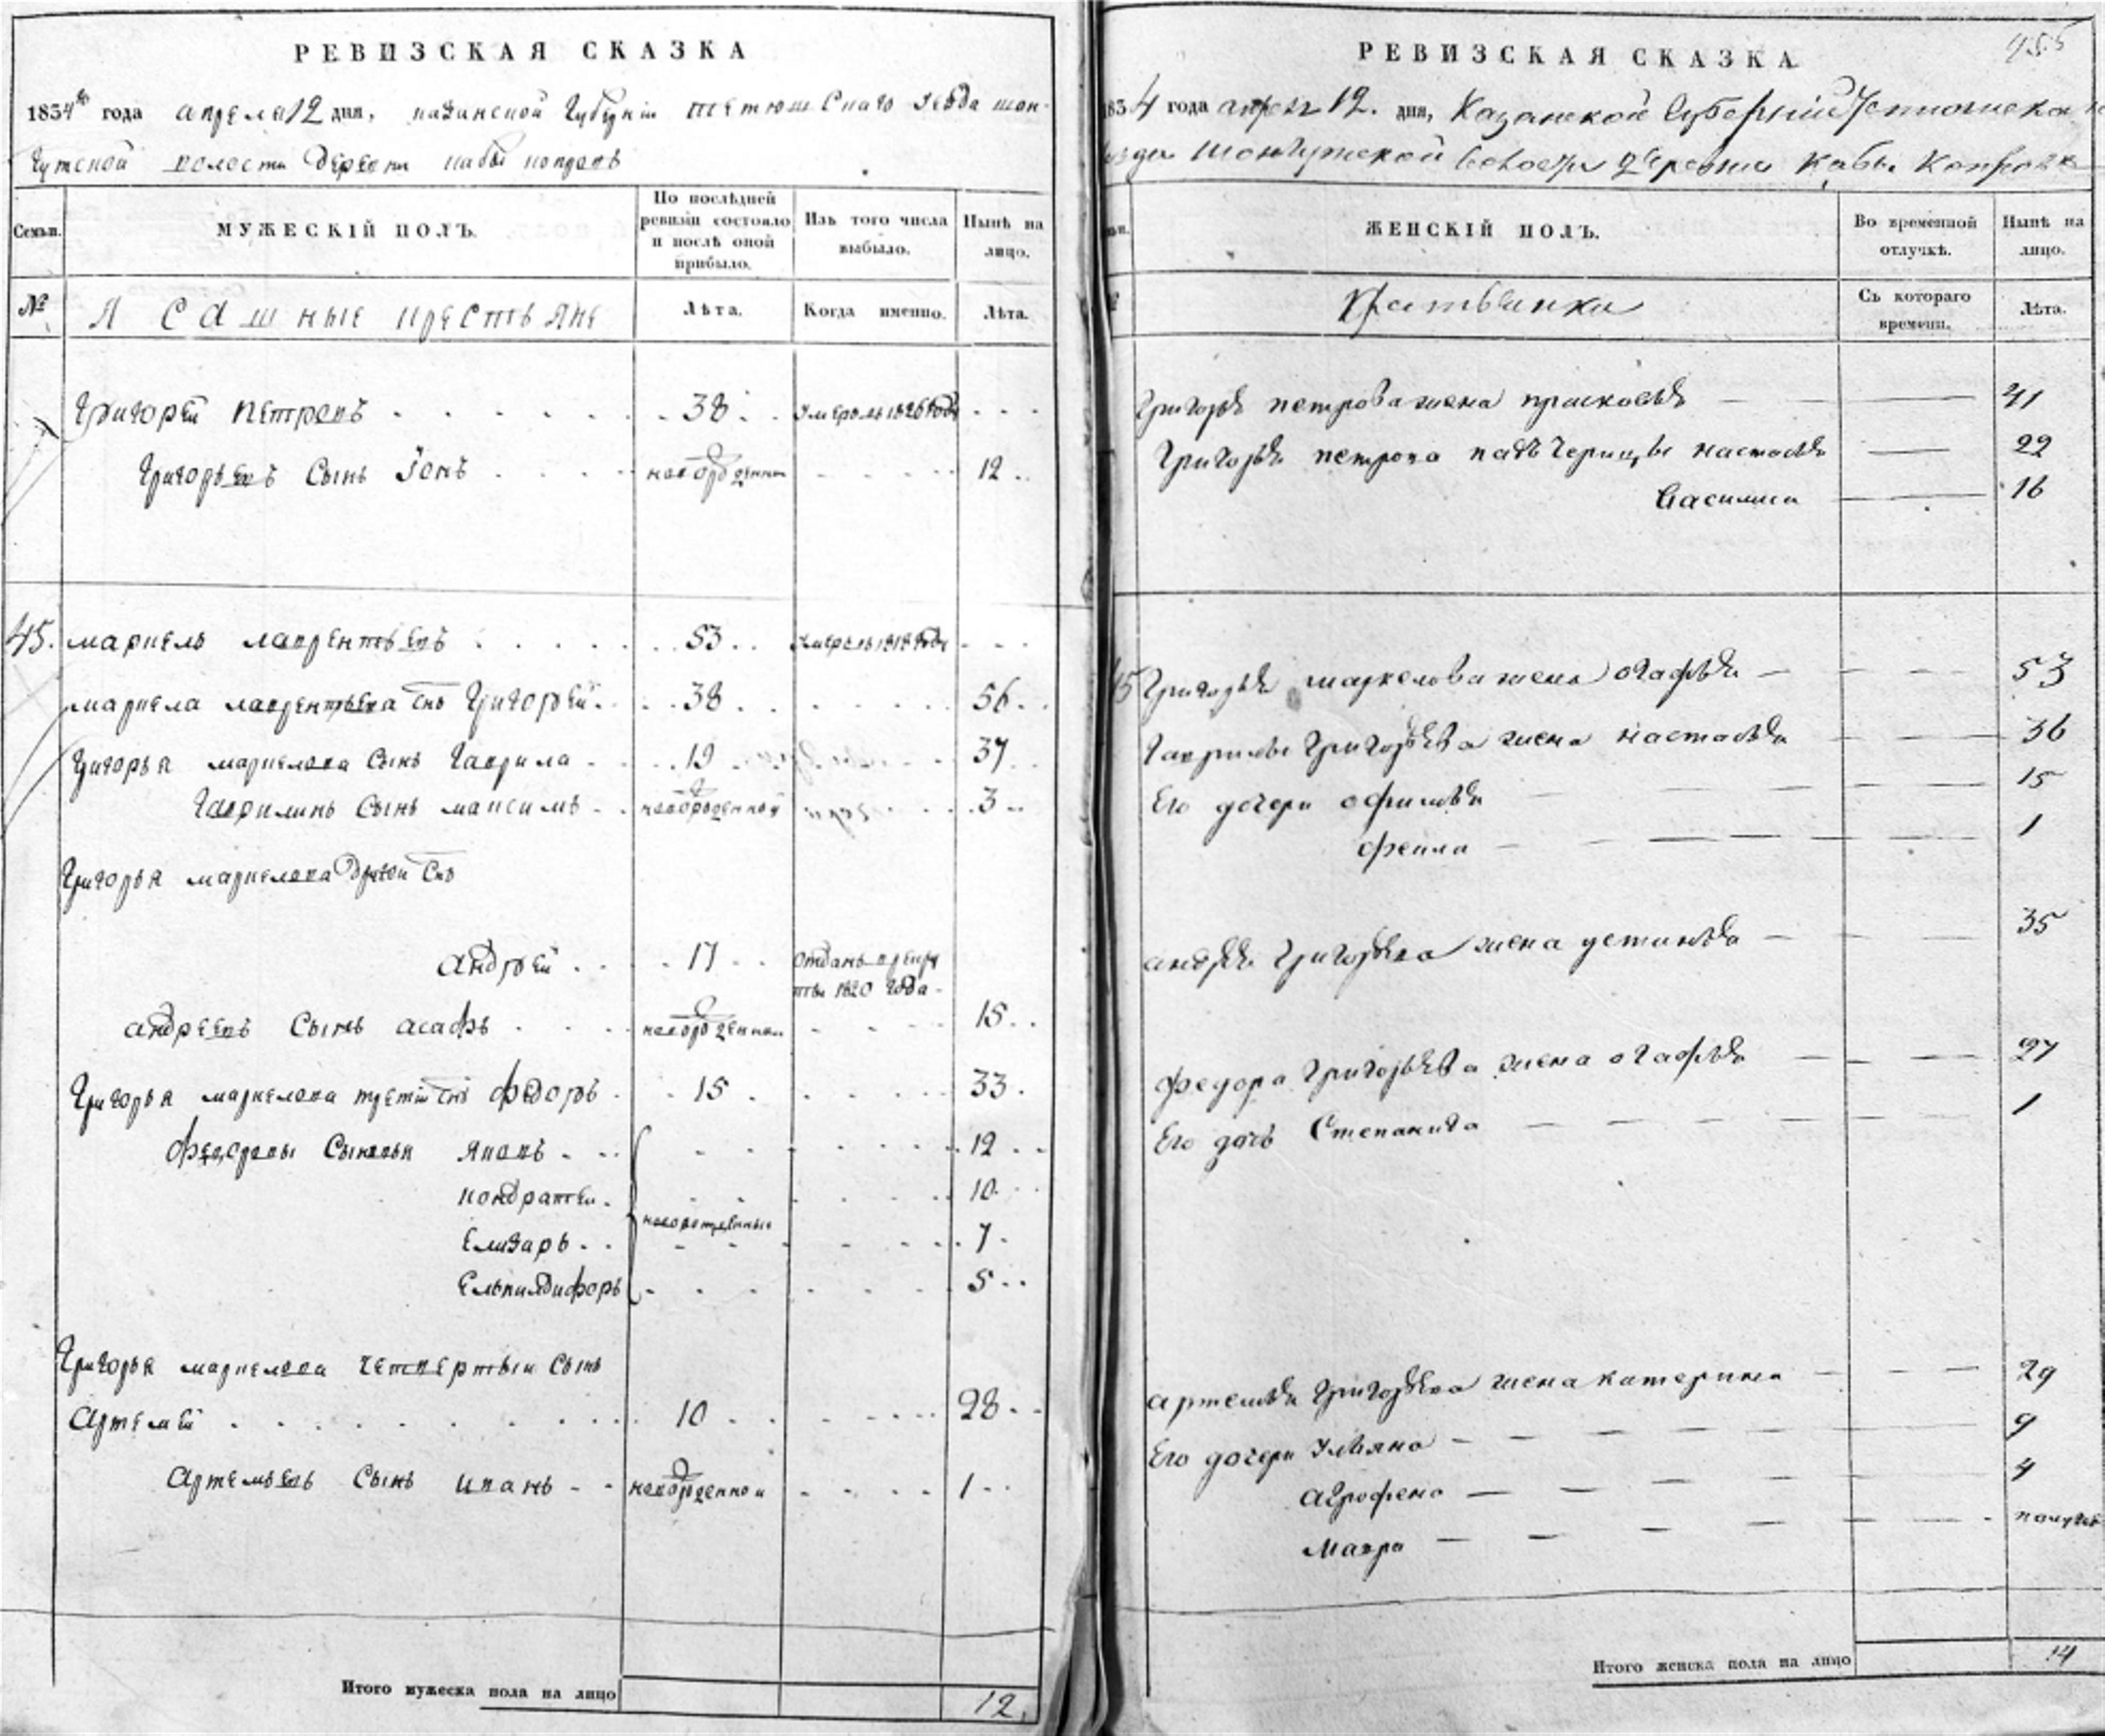 РЕВИЗСКАЯ СКАЗКА
1834го года апреля 12 дня, казанской Губерніи тетюшскаго уезда шон-
гутской волости деревни кабы копровъ
Семьи. МУЖЕСКІЙ ПОЛЪ. По послѣдней ревизіи состояло и послѣ оной прибыло. Изъ того числа выбыло. Нынѣ на лицо.
№ Ясашные крестьяне Лѣта. Когда именно. Лѣта.
Григорей петровъ 38 умеръ въ 1826 году
Григорьевъ Сынъ Іонъ новорожденны 12
45. маркелъ лаврентьевъ 53 умеръ въ 1818 году
маркела лаврентьева Снъ Григорей 38 56
Григорья маркелова Сынъ Гаврила 19 37
Гаврилинъ Сынъ максимъ новорожденной 3
Григорья маркелова другой Снъ
андрей 17 отданъ в рекру
ты 1820 года
андреевъ Сынъ асафъ новорожденны 15
Григорья маркелова третій Снъ федоръ 15 33
федоровы Сыновьи яковъ 12
кондратеи 10
новорожденные
Елизаръ 7
Ельпидифоръ 5
Григорья маркелова четвертыи Сынъ
Артемей 10 28
Артемьевъ Сынъ иванъ новорожденной 1
Итого мужеска пола на лицо 12
455
РЕВИЗСКАЯ СКАЗКА
1834 года апреля 12. дня, Казанской Губерніи Тетюшскаго
уезда Шонгутской Волости Деревни Кабы Копровъ
ЖЕНСКІЙ ПОЛЪ. Во временной отлучкѣ. Нынѣ на лицо.
Крестьянки Съ котораго времени. Лѣта.
Григорья петрова жена прасковья 41
Григорья петрова падчерицы настасья 22
Василиса 16
45 Григорья маркелова жена огафья 53
Гаврилы Григорьева жена настасья 36
Его дочери офимья 15
фекла 1
андрея Григорьева жена устинья 35
федора Григорьева жена огафья 27
Его дочь Степанида 1
артемья Григорьева жена катерина 29
Его дочери ульяна 9
агрофена 4
мавра полугода
Итого женска пола на лицо 14